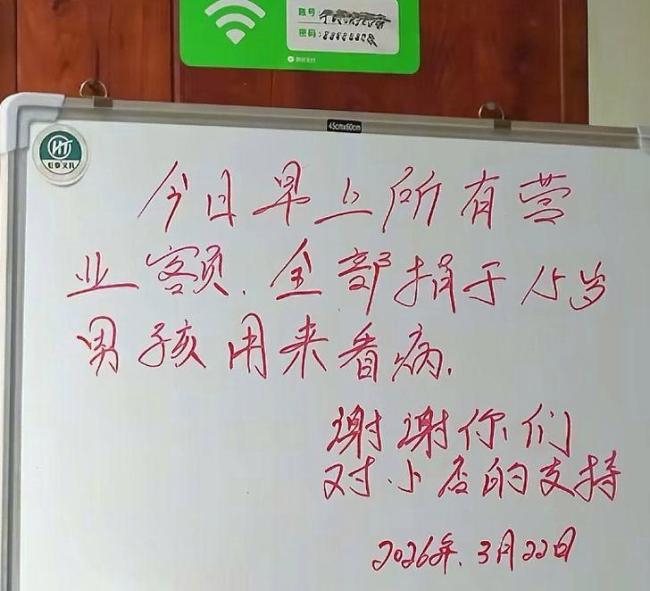 账号:
密码:
45cmx60cm
HT
今日早上所有营
业额.全部捐于15岁
男孩用来看病.
谢谢你们
对小店的支持
2026年.3月22日